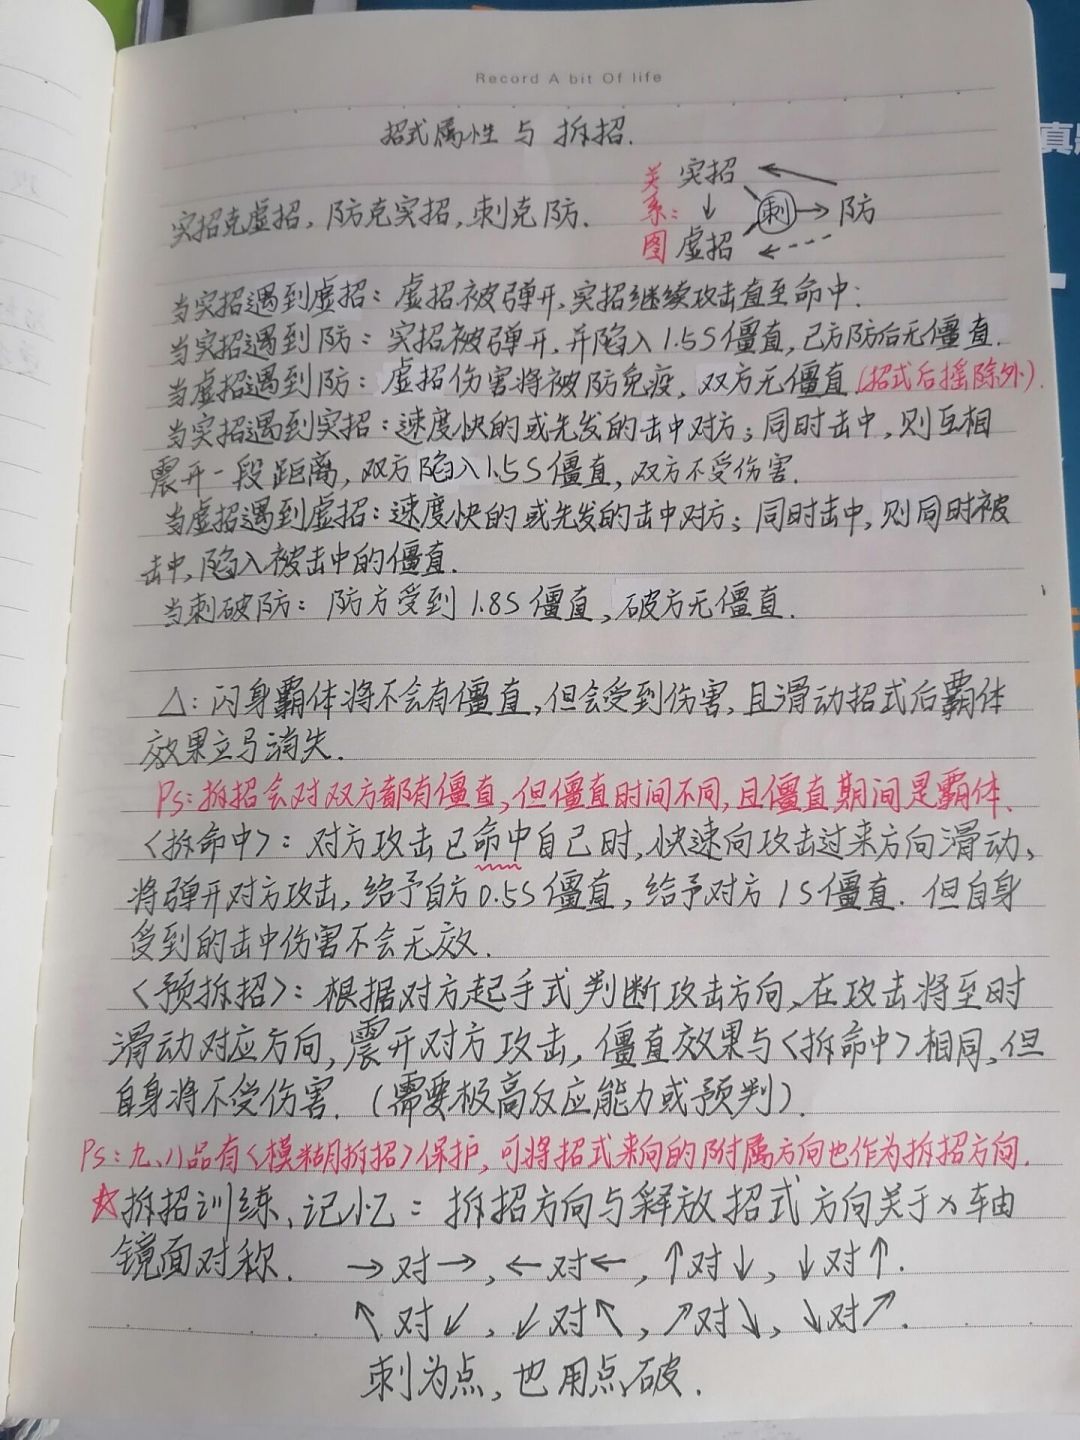 Record A bit Of life
真
招式属性与拆招.
实招克虚招,防克实招,刺克防.
关系图: 实招 ← 防
↓ 刺 → 防
虚招 ⇠
当实招遇到虚招:虚招被弹开,实招继续攻击直至命中;
当实招遇到防:实招被弹开,并陷入1.5S僵直,己方防后无僵直.
当虚招遇到防:虚招伤害将被防免疫,双方无僵直(招式后摇除外).
当实招遇到实招:速度快的或先发的击中对方;同时击中,则互相
震开一段距离,双方陷入1.5S僵直,双方不受伤害.
当虚招遇到虚招:速度快的或先发的击中对方;同时击中,则同时被
击中,陷入被击中的僵直.
当刺破防:防方受到1.8S僵直,破方无僵直.
△:闪身霸体将不会有僵直,但会受到伤害,且滑动招式后霸体
效果立马消失.
Ps:拆招会对双方都有僵直,但僵直时间不同,且僵直期间是霸体.
<拆命中>:对方攻击已命中自己时,快速向攻击过来方向滑动,
将弹开对方攻击,给予自方0.5S僵直,给予对方1S僵直.但自身
受到的击中伤害不会无效.
<预拆招>:根据对方起手式判断攻击方向,在攻击将至时
滑动对应方向,震开对方攻击,僵直效果与<拆命中>相同,但
自身将不受伤害.(需要极高反应能力或预判).
Ps:九、八品有<模糊拆招>保护,可将招式来向的附属方向也作为拆招方向.
☆拆招训练、记忆:拆招方向与释放招式方向关于x轴
镜面对称. →对→,←对←,↑对↓,↓对↑.
↖对↙,↙对↖,↗对↘,↘对↗.
刺为点,也用点破.